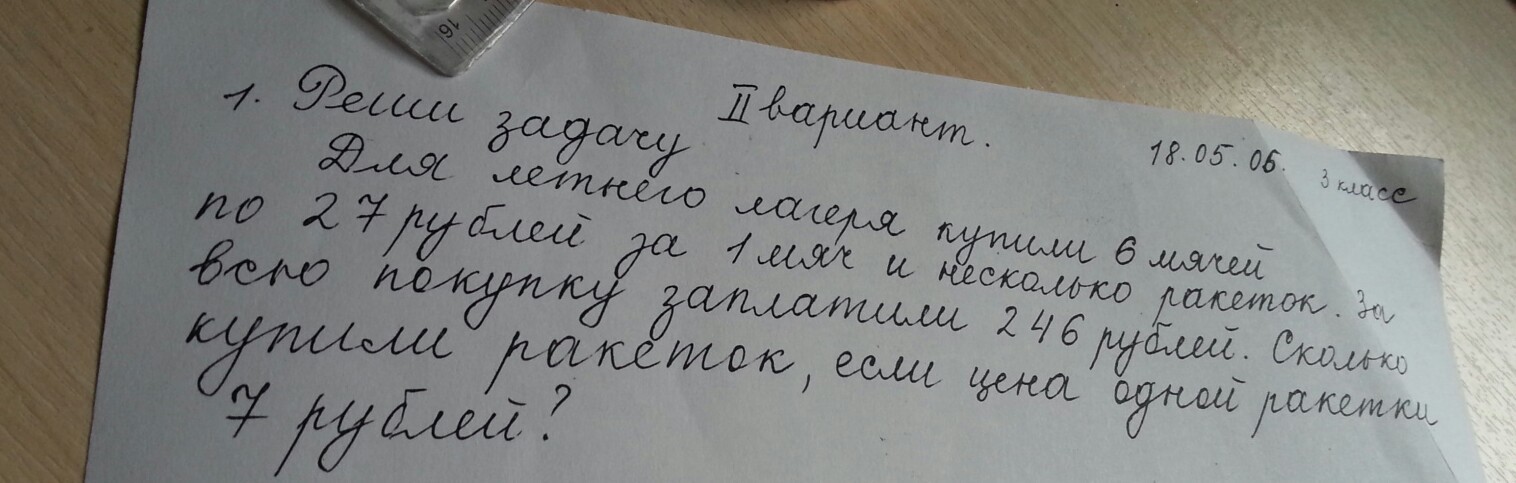 16
II вариант.
18.05.06. 3 класс
1. Реши задачу
Для летнего лагеря купили 6 мячей
по 27 рублей за 1 мяч и несколько ракеток. За
всю покупку заплатили 246 рублей. Сколько
купили ракеток, если цена одной ракетки
7 рублей?